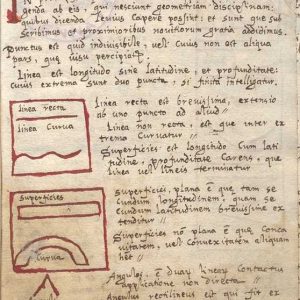 genda ab eis, qui nesciunt geometriam disciplinam:
quibus dicenda Levius Capere possint: et sunt que sub
Scribimus et proximioribus novitiorum gratia addidimus.
Punctus est quid indivisibile, vel Cuius non est aliqua
pars, que visu percipia
Linea est longitudo sine latitudine, et profunditate:
cuius extrema sunt duo puncta, si finita intelligatur.
Linea recta
Linea Curva
Linea recta est brevissima, extensio
ab uno puncto ad aliud
Linea non recta, est que inter ex
trema Curvatur
Superficies est longitudo Cum lati
tudine, profunditate Carens, que
Linea vel lineis terminatur
Superficies
Curva
Superficies, plana é que tam se
cundum longitudinem, quam se
cundum latitudinem brevissime ex
tenditur
Superficies no plana é que Conca
vitatem, vel Convexitatem aliquam
hét
Angulus, é duaru linearu Contactus
applicatione non directa
Angulus rectilineus est qui fit ex